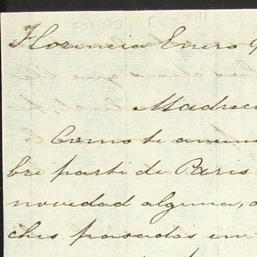 Florencia Enero 9
Madre
Como te anun
bre parti de Paris
novedad alguna, a
ches pasadas en